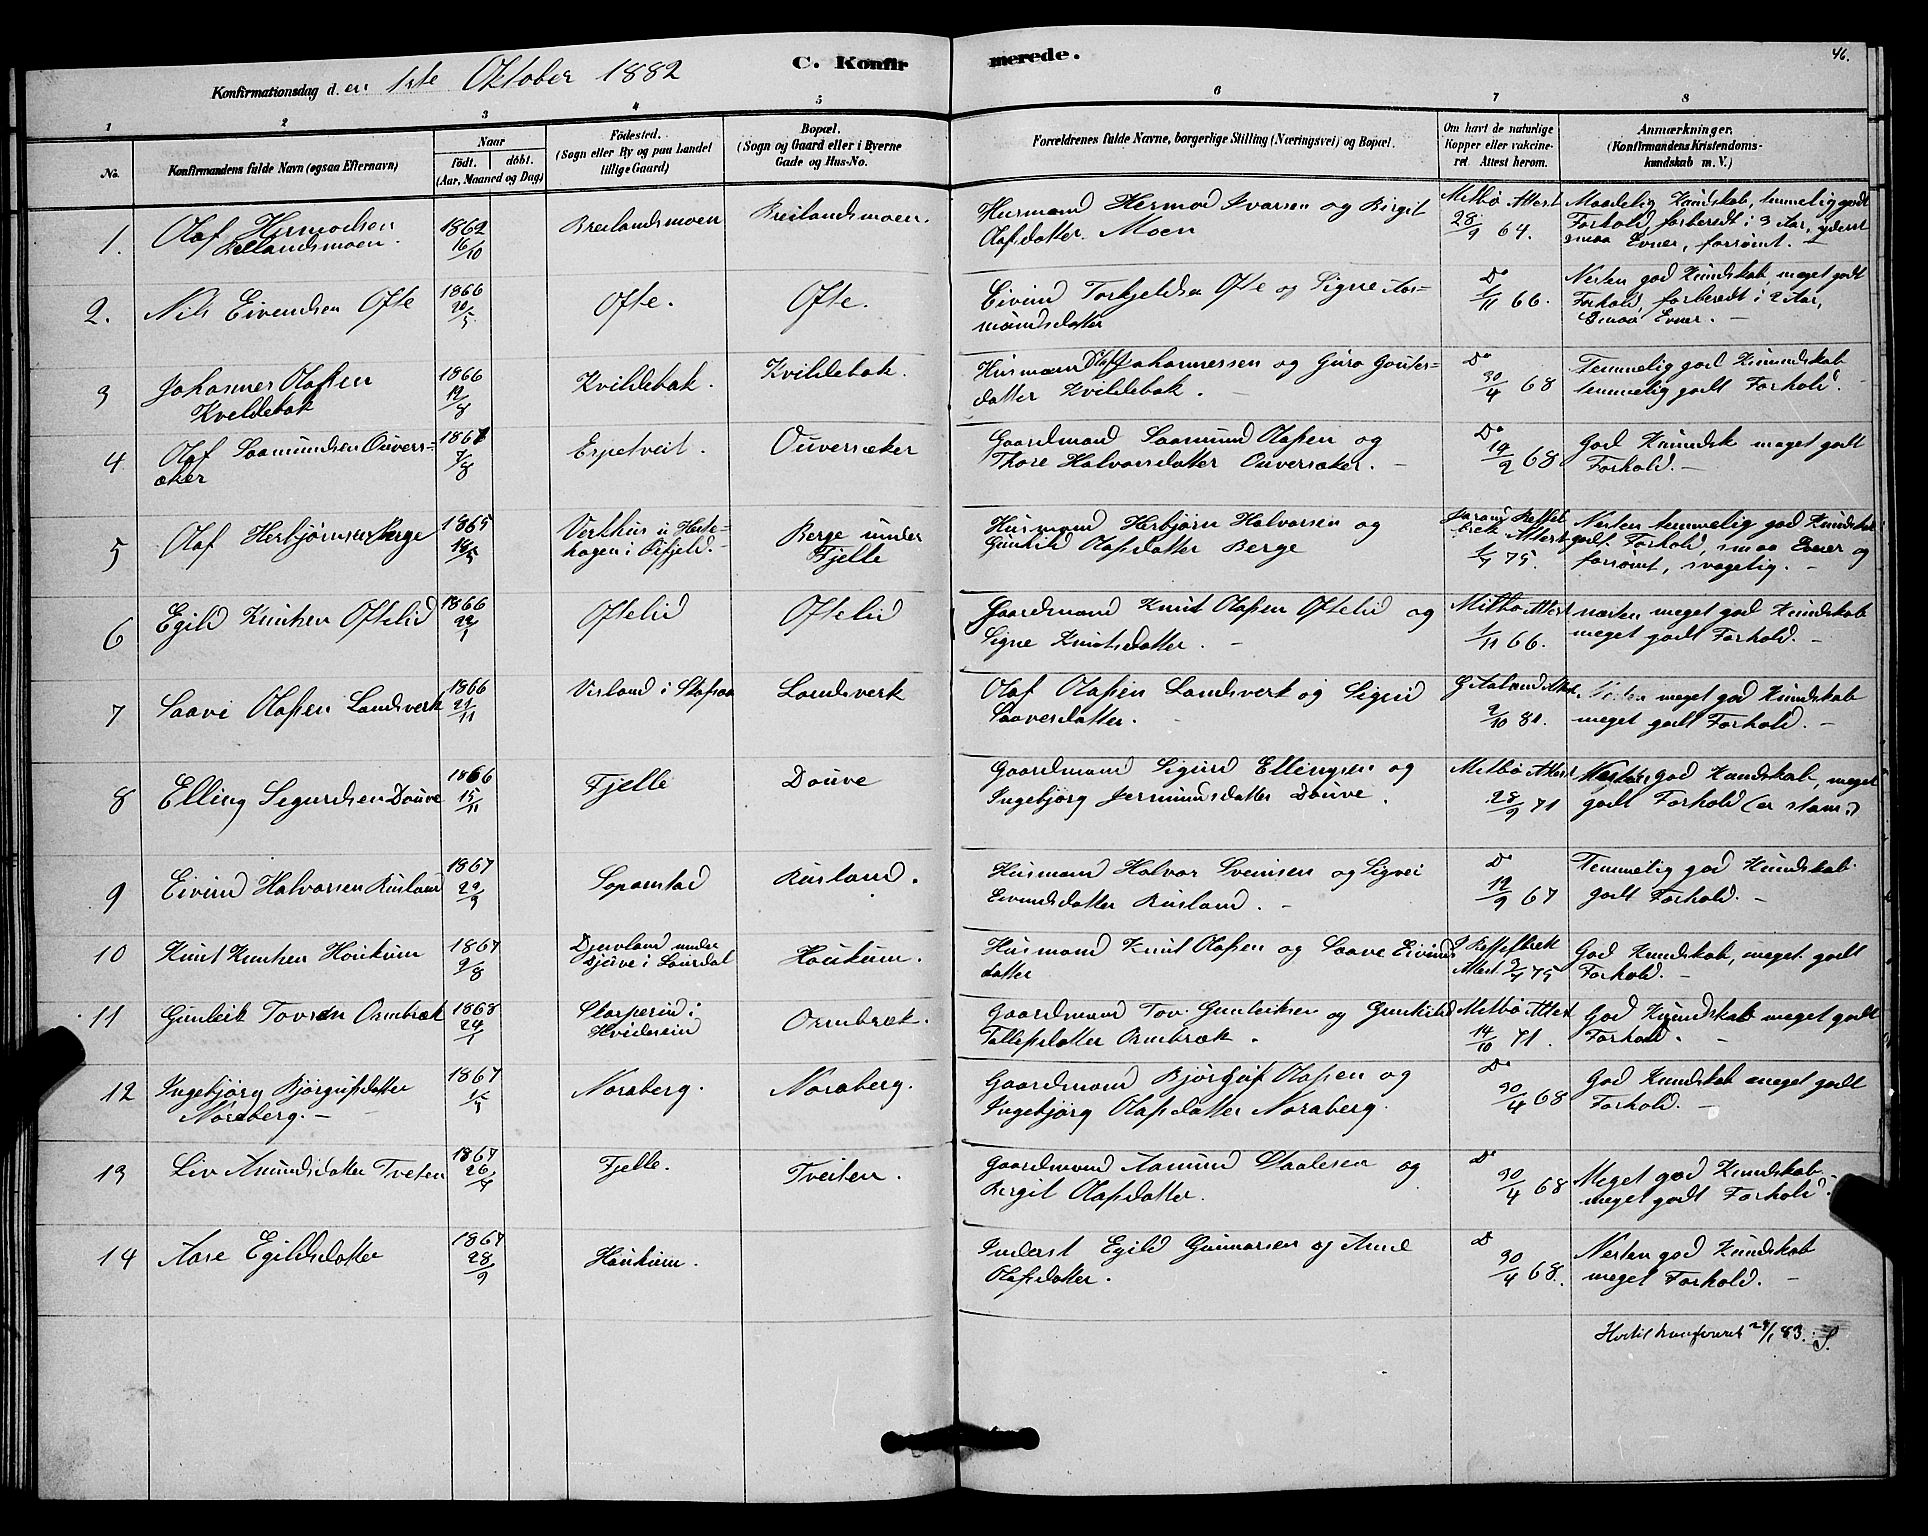 46.
Konfirmationsdag d. en 1ste Oktober 1882
C. Konfirmerede.
1 2 3 4 5 6 7 8
No.
Konfirmandens fulde Navn (ogsaa Efternavn)
Naar
födt. döbt.
(Aar, Maaned og Dag)
Födested.
(Sogn eller By og paa Landet
tillige Gaard)
Bopæl.
(Sogn og Gaard eller i Byerne
Gade og Hus-No.
Forældrenes fulde Navne, borgerlige Stilling (Næringsvei) og Bopæl.
Om havt de naturlige
Kopper eller vakcine-
ret. Attest herom.
Anmærkninger.
(Konfirmandens Kristendoms-
kundskab m. V.)
1. Olaf Hermodsen
Breilandsmoen.
1862
16/10
Breilandsmoen
Breilandsmoen.
Husmand Hermod Ivarsen og Birgit
Olafsdatter Moen
Metbø Attest
28/9 64.
Maadelig Kundskab, temmelig godt
Forhold, forberedt i 3 Aar, yderst
smaa Evner, forsømt. –
2. Nils Eivendsen Ofte
1866
20/5
Ofte.
Ofte.
Eivind Torkjeldsen Ofte og Signe Aas-
mundsdatter
Do
1/11 66.
Nesten god Kundskab, meget godt
Forhold, forberedt i 2 Aar,
smaa Evner. –
3 Johannes Olafsen
Kveldebak
1866
12/8
Kvildebak.
Kvildebak.
Husmand Olaf Johannessen og Guro Gouters-
datter Kvildebak. –
Do
30/4 68
Temmelig god Kundskab
temmelig godt Forhold. –
4 Olaf Saamundsen Ouvers-
æker
1867
7/8
Espetveit.
Ouversæker
Gaardmand Saamund Olafsen og
Thore Halvorsdatter Ouversæker. –
Do
19/2 68
God Kundsk meget godt
Forhold. –
5 Olaf Herbjørnsen Berge
1865
18/5
Berge under
Fjelle
Husmand Herbjørn Halvorsen og
Gunhild Olafsdatter Berge
Attest
1/7 75.
Nesten temmelig god Kundskab
godt Forhold, smaa Evner og
forsømt, svagelig. –
6 Egild Knutsen Oftelid
1866
22/1
Oftelid
Oftelid
Gaardmand Knut Olafsen Oftelid og
Signe Knutsdatter. –
Metbø Attest
1/11 66.
næsten meget god Kundskab
meget godt Forhold. –
7 Saave Olafsen Landsverk
1866
21/11
Visland i Skafsaa
Landsverk
Olaf Olafsen Landsverk og Sigrid
Saavesdatter. –
2/10 81.
Nesten meget god Kundskab
meget godt Forhold. –
8 Elling Sigurdsen Douve
1866
15/11
Fjelle
Douve
Gaardmand Sigurd Ellingsen og
Ingebjørg Jermundsdatter Douve.
Metbø Attest
28/9 71
Nesten god Kundskab, meget
godt Forhold (er stam.)
9 Eivind Halvorsen Rusland
1867
29/9
Sopamtad
Rusland.
Husmand Halvor Sveinsen og Sigvei
Eivindsdatter Rusland. –
Do
12/9 67
Temmelig god Kundskab
godt Forhold. –
10 Knut Knutsen Houkum
1867
9/8
Djuvland under
Djuve i Laurdal
Houkum.
Husmand Knut Olafsen og Saave Eivinds
datter
Attest 2/7 75
God Kundskab, meget godt
Forhold. –
11 Gunleik Tovsen Ormbræk
1868
24/1
Skarperud i
Hvideseid
Ormbræk.
Gaardmand Tov Gunleiksen og Gunhild
Tallefsdatter Ormbræk.
Metbø Attest
14/10 71.
God Kundskab meget godt
Forhold. –
12 Ingebjørg Bjørgufsdatter
Noraberg. –
1867
1/5
Noraberg.
Noraberg.
Gaardmand Bjørguf Olafsen og
Ingebjørg Olafsdatter Noraberg.
Do
30/4 68
God Kundskab meget godt
Forhold. –
13 Liv Amundsdatter Tveten
1867
26/4
Fjelle.
Tveiten.
Gaardmand Aamund Staalesen og
Bergit Olafsdatter.
Do
30/4 68
Meget god Kundskab
meget godt Forhold.
14 Aase Egildsdatter
1867
28/9
Houkum.
Inderst Egild Gunnarsen og Anne
Olafsdatter.
Do
30/4 68.
Nesten god Kundskab
meget Forhold. –
Hertil konfereret 29/1 83. S.